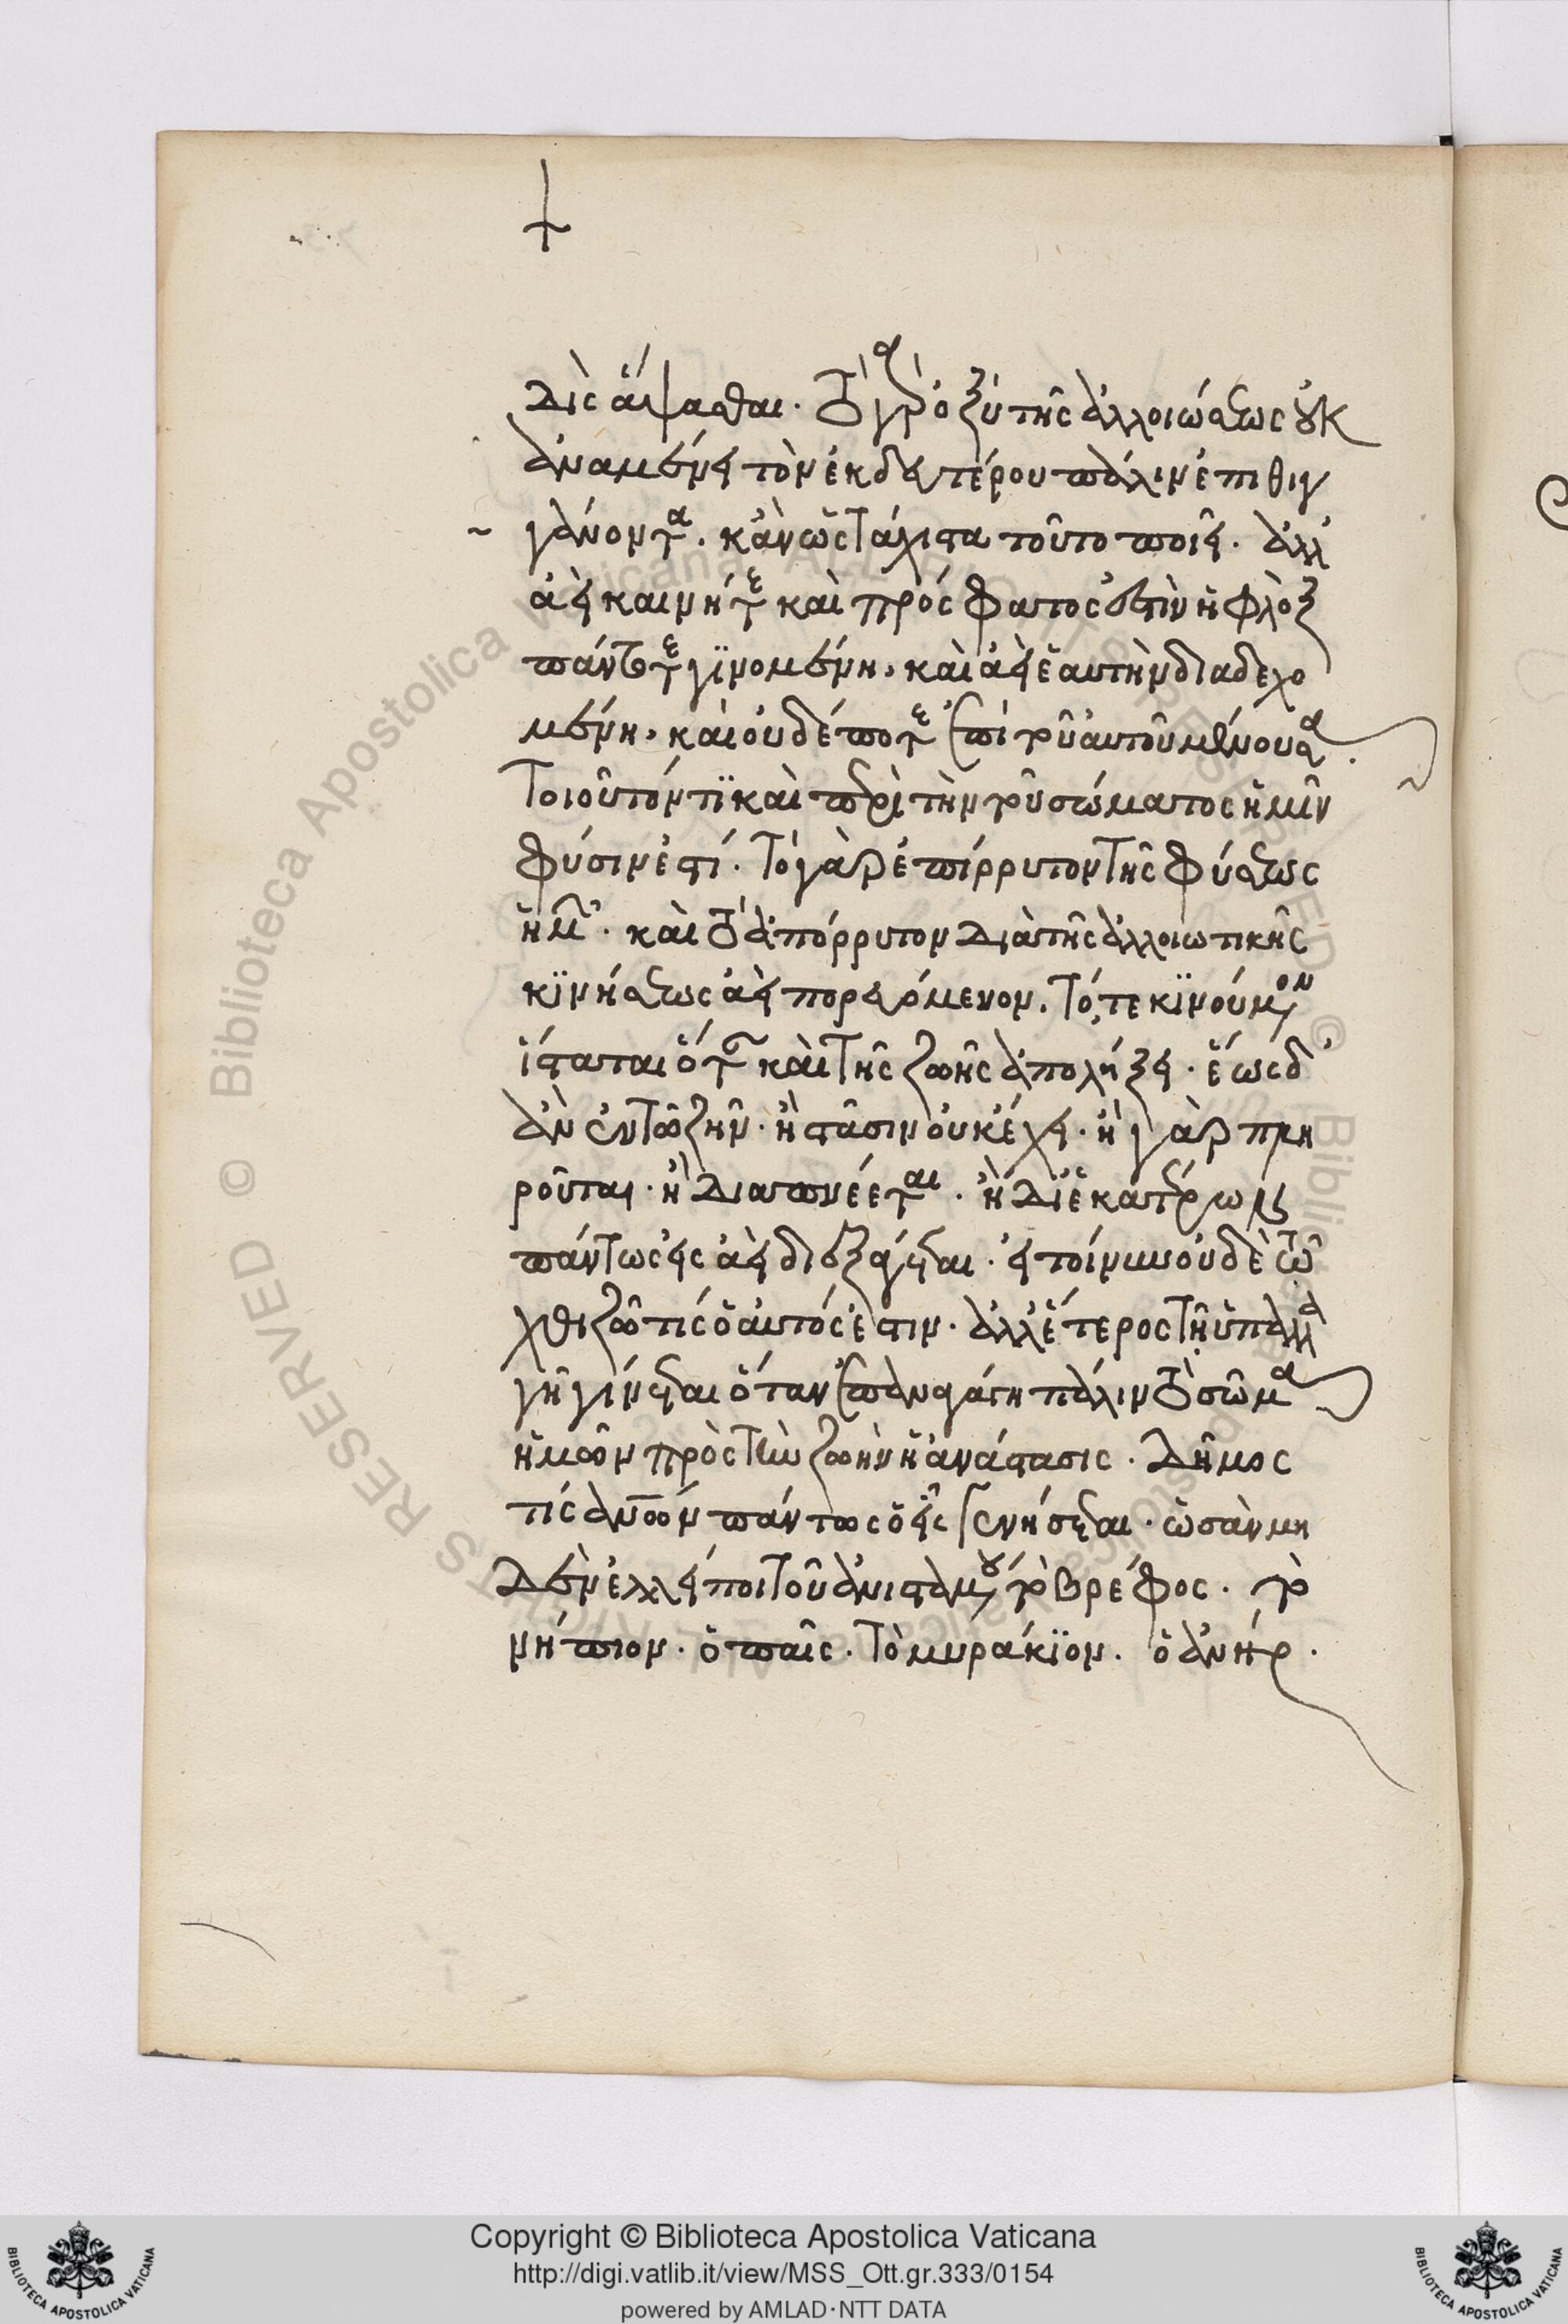 δὶς ἅψασθαι. τὸ γὰρ ὀξὺ τῆς ἀλλοιώσεως οὐκ
ἀναμένει τὸν ἐκ δευτέρου πάλιν ἐπιθιγ
γάνοντα. κἂν ὡς τάχιστα τοῦτο ποιῇ. ἀλλ'
ἀεὶ καινή τε καὶ πρόσφατος ἐστὶν ἡ φλὸξ
πάντοτε γϊνομένη, καὶ ἀεὶ ἑαυτὴν διαδεχο
μένη, καὶ οὐδέποτε ἐπὶ τοῦ αὐτοῦ μένουσα.
Τοιοῦτόν τϊ καὶ περὶ τὴν τοῦ σώματος ἡμῶν
φύσιν ἐστί. Τὸ γὰρ ἐπίρρυτον τῆς φύσεως
ἡμῶν. καὶ τὸ ἀπόρρυτον διὰ τῆς ἀλλοιωτικῆς
κϊνήσεως ἀεὶ πορευόμενον. Τό, τε κϊνούμενον
ἵσταται ὅταν καὶ τῆς ζωῆς ἀπολήξει. ἕως δ'
ἂν ἐν τῶ ζῆν. ἡ στᾶσιν οὐκ ἔχει. ἢ γὰρ πλη
ροῦται. ἢ διαπνέεται. ἢ δι' ἑκατέρων
πάντως εἰς ἀεὶ διεξάγεται. εἰ τοίνυν οὐδὲ τῶ
χθιζῶ τίς ὁ αὐτός ἐστιν. ἀλλ' ἕτερος τῇ ὑπαλλα
γῇ γίνεται ὅταν ἐπαναγάγη πάλιν τὸ σῶμα
ἡμῶν πρὸς τὴν ζωὴν ἡ ἀνάστασις. Δῆμος
τίς ἀνῶν πάντως ὁ εἷς γενήσεται. ὡς ἂν μη
δὲν ἐλλείποι τοῦ ἀνισταμένου τὸ βρέφος. τὸ
νήπιον. ὁ παῖς. Τὸ μειράκϊον. ὁ ἀνήρ.
Copyright © Biblioteca Apostolica Vaticana
http://digi.vatlib.it/view/MSS_Ott.gr.333/0154
powered by AMLAD·NTT DATA